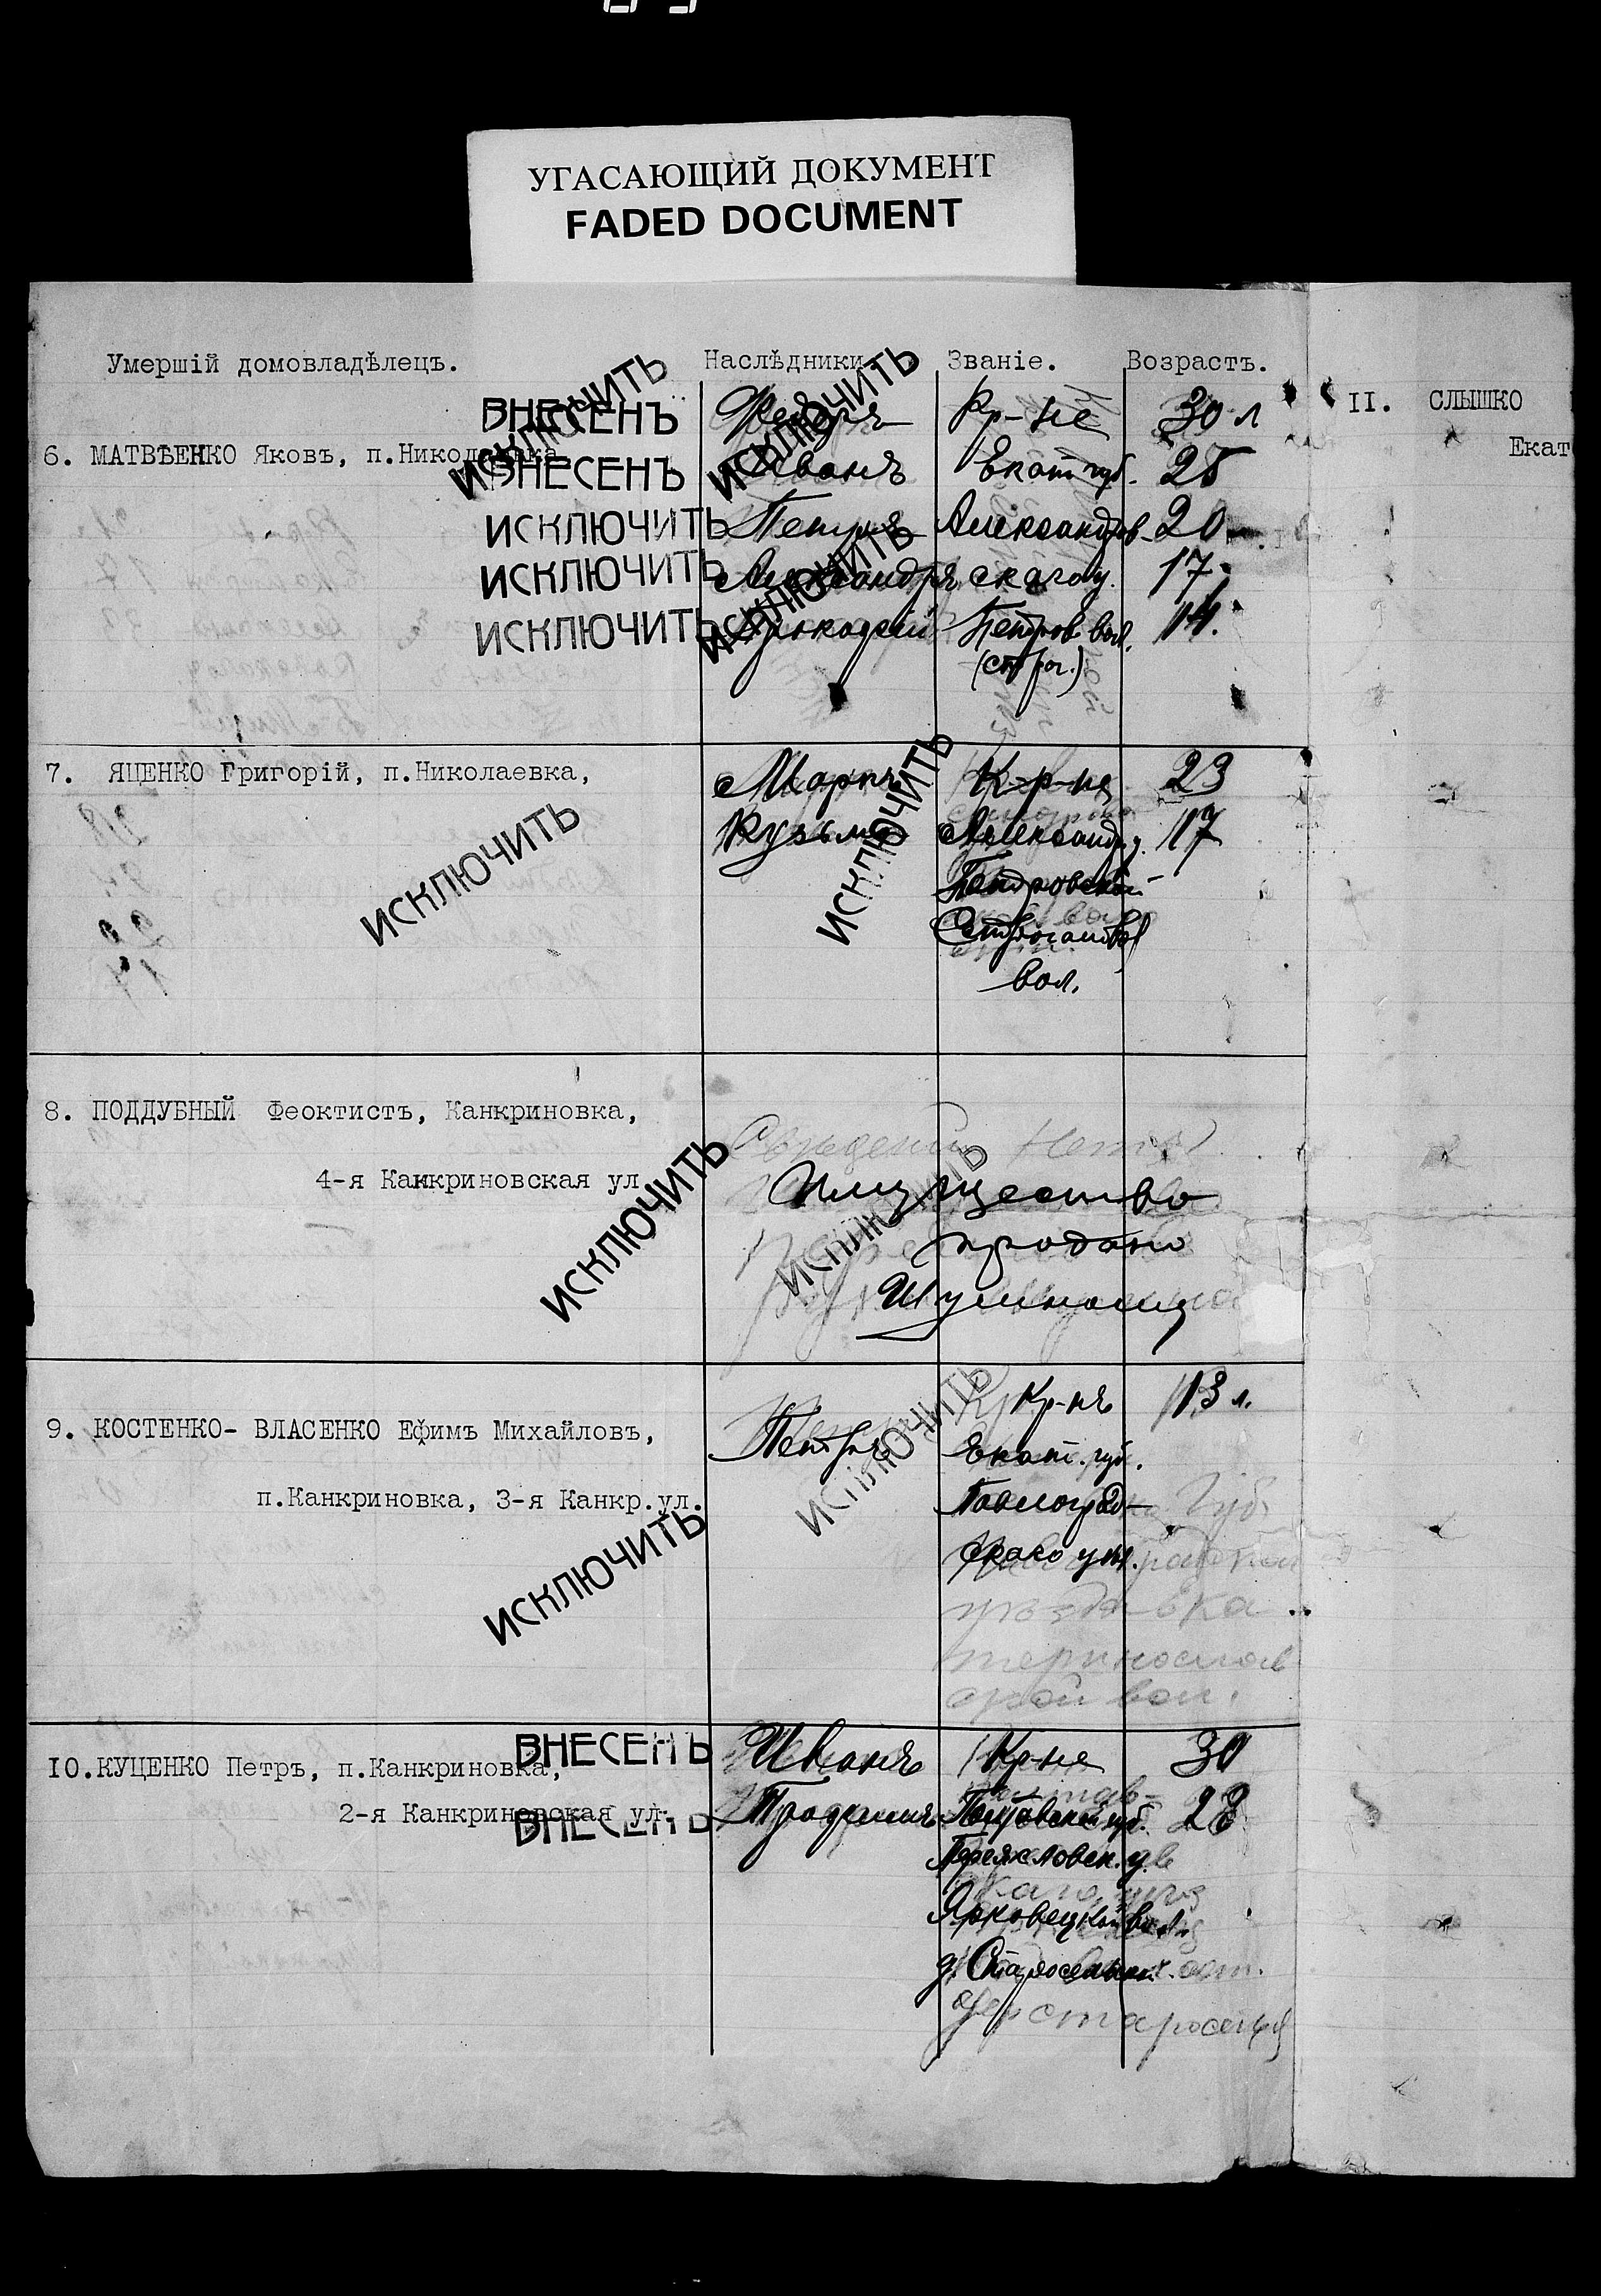 УГАСАЮЩИЙ ДОКУМЕНТ
FADED DOCUMENT
Умершій домовладѣлецъ. Наслѣдники Званіе. Возрастъ.
ИСКЛЮЧИТЬ ИСКЛЮЧИТЬ
ВНЕСЕНЪ Федоръ Кр-не 30 л
6. МАТВѢЕНКО Яковъ, п.Николаевка
ВНЕСЕНЪ Иванъ Екат. губ. 25
ИСКЛЮЧИТЬ Петръ Александров- 20
ИСКЛЮЧИТЬ Александръ скаго у. 17
ИСКЛЮЧИТЬ ИСКЛЮЧИТЬ Петров. вол. 14.
(строг.)
7. ЯЦЕНКО Григорій, п.Николаевка, Маркъ Кр-не 23
Кузьма Александ. у. 17
ИСКЛЮЧИТЬ ИСКЛЮЧИТЬ Петровской
вол.
8. ПОДДУБНЫЙ Феоктистъ, Канкриновка,
Свѣдений нетъ
4-я Канкриновская ул
Имущество
ИСКЛЮЧИТЬ ИСКЛЮЧИТЬ продано
Шумному
9. КОСТЕНКО- ВЛАСЕНКО Ефимъ Михайловъ, Петръ Кр-нъ 13 л.
Екат. губ.
п.Канкриновка, 3-я Канкр.ул. Павлоград-
скаго уѣз.
ИСКЛЮЧИТЬ ИСКЛЮЧИТЬ
уѣзда Ека
териносла
ской вол.
10.КУЦЕНКО Петръ, п.Канкриновка, ВНЕСЕНЪ Иванъ Кр-не 30
2-я Канкриновская ул. ВНЕСЕНЪ Полтавской губ. 28
Переясловск. у.
вол.
д. Староселья
дер староселья
II. СЛЫШКО
Екат